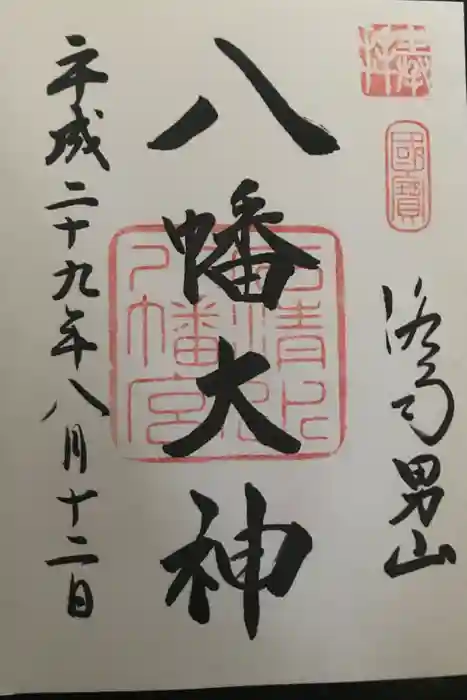 奉拝
國寶
洛南男山
八幡大神
石清水
八幡宮
平成二十九年八月十二日